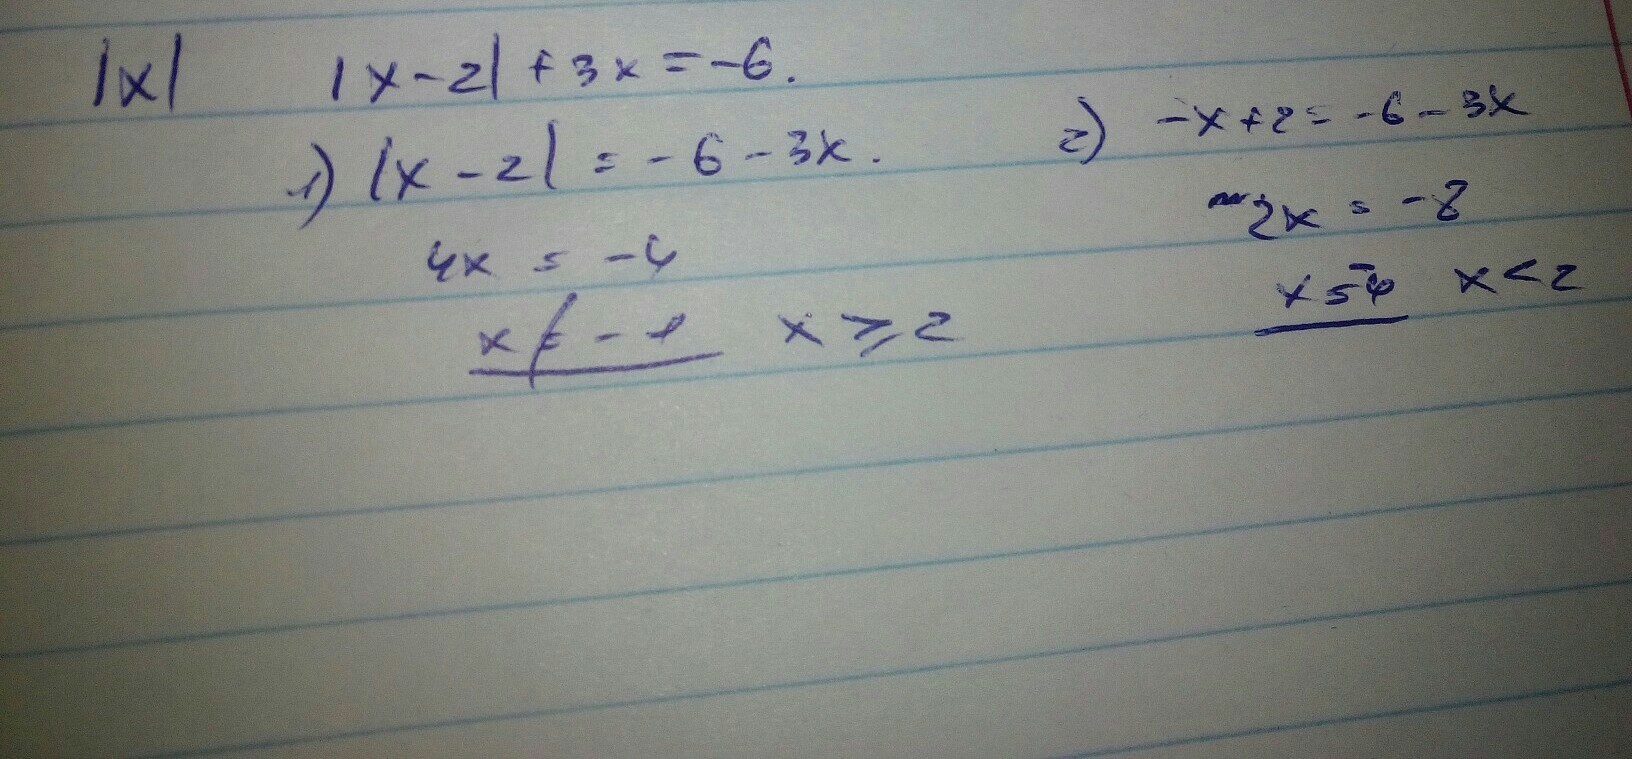 |x| |x-2| + 3x = -6.
1) |x - 2| = - 6 - 3x.
4x = -4
x = -1 x ≥ 2
2) -x+2 = -6 - 3x
2x = -8
x = -4 x < 2